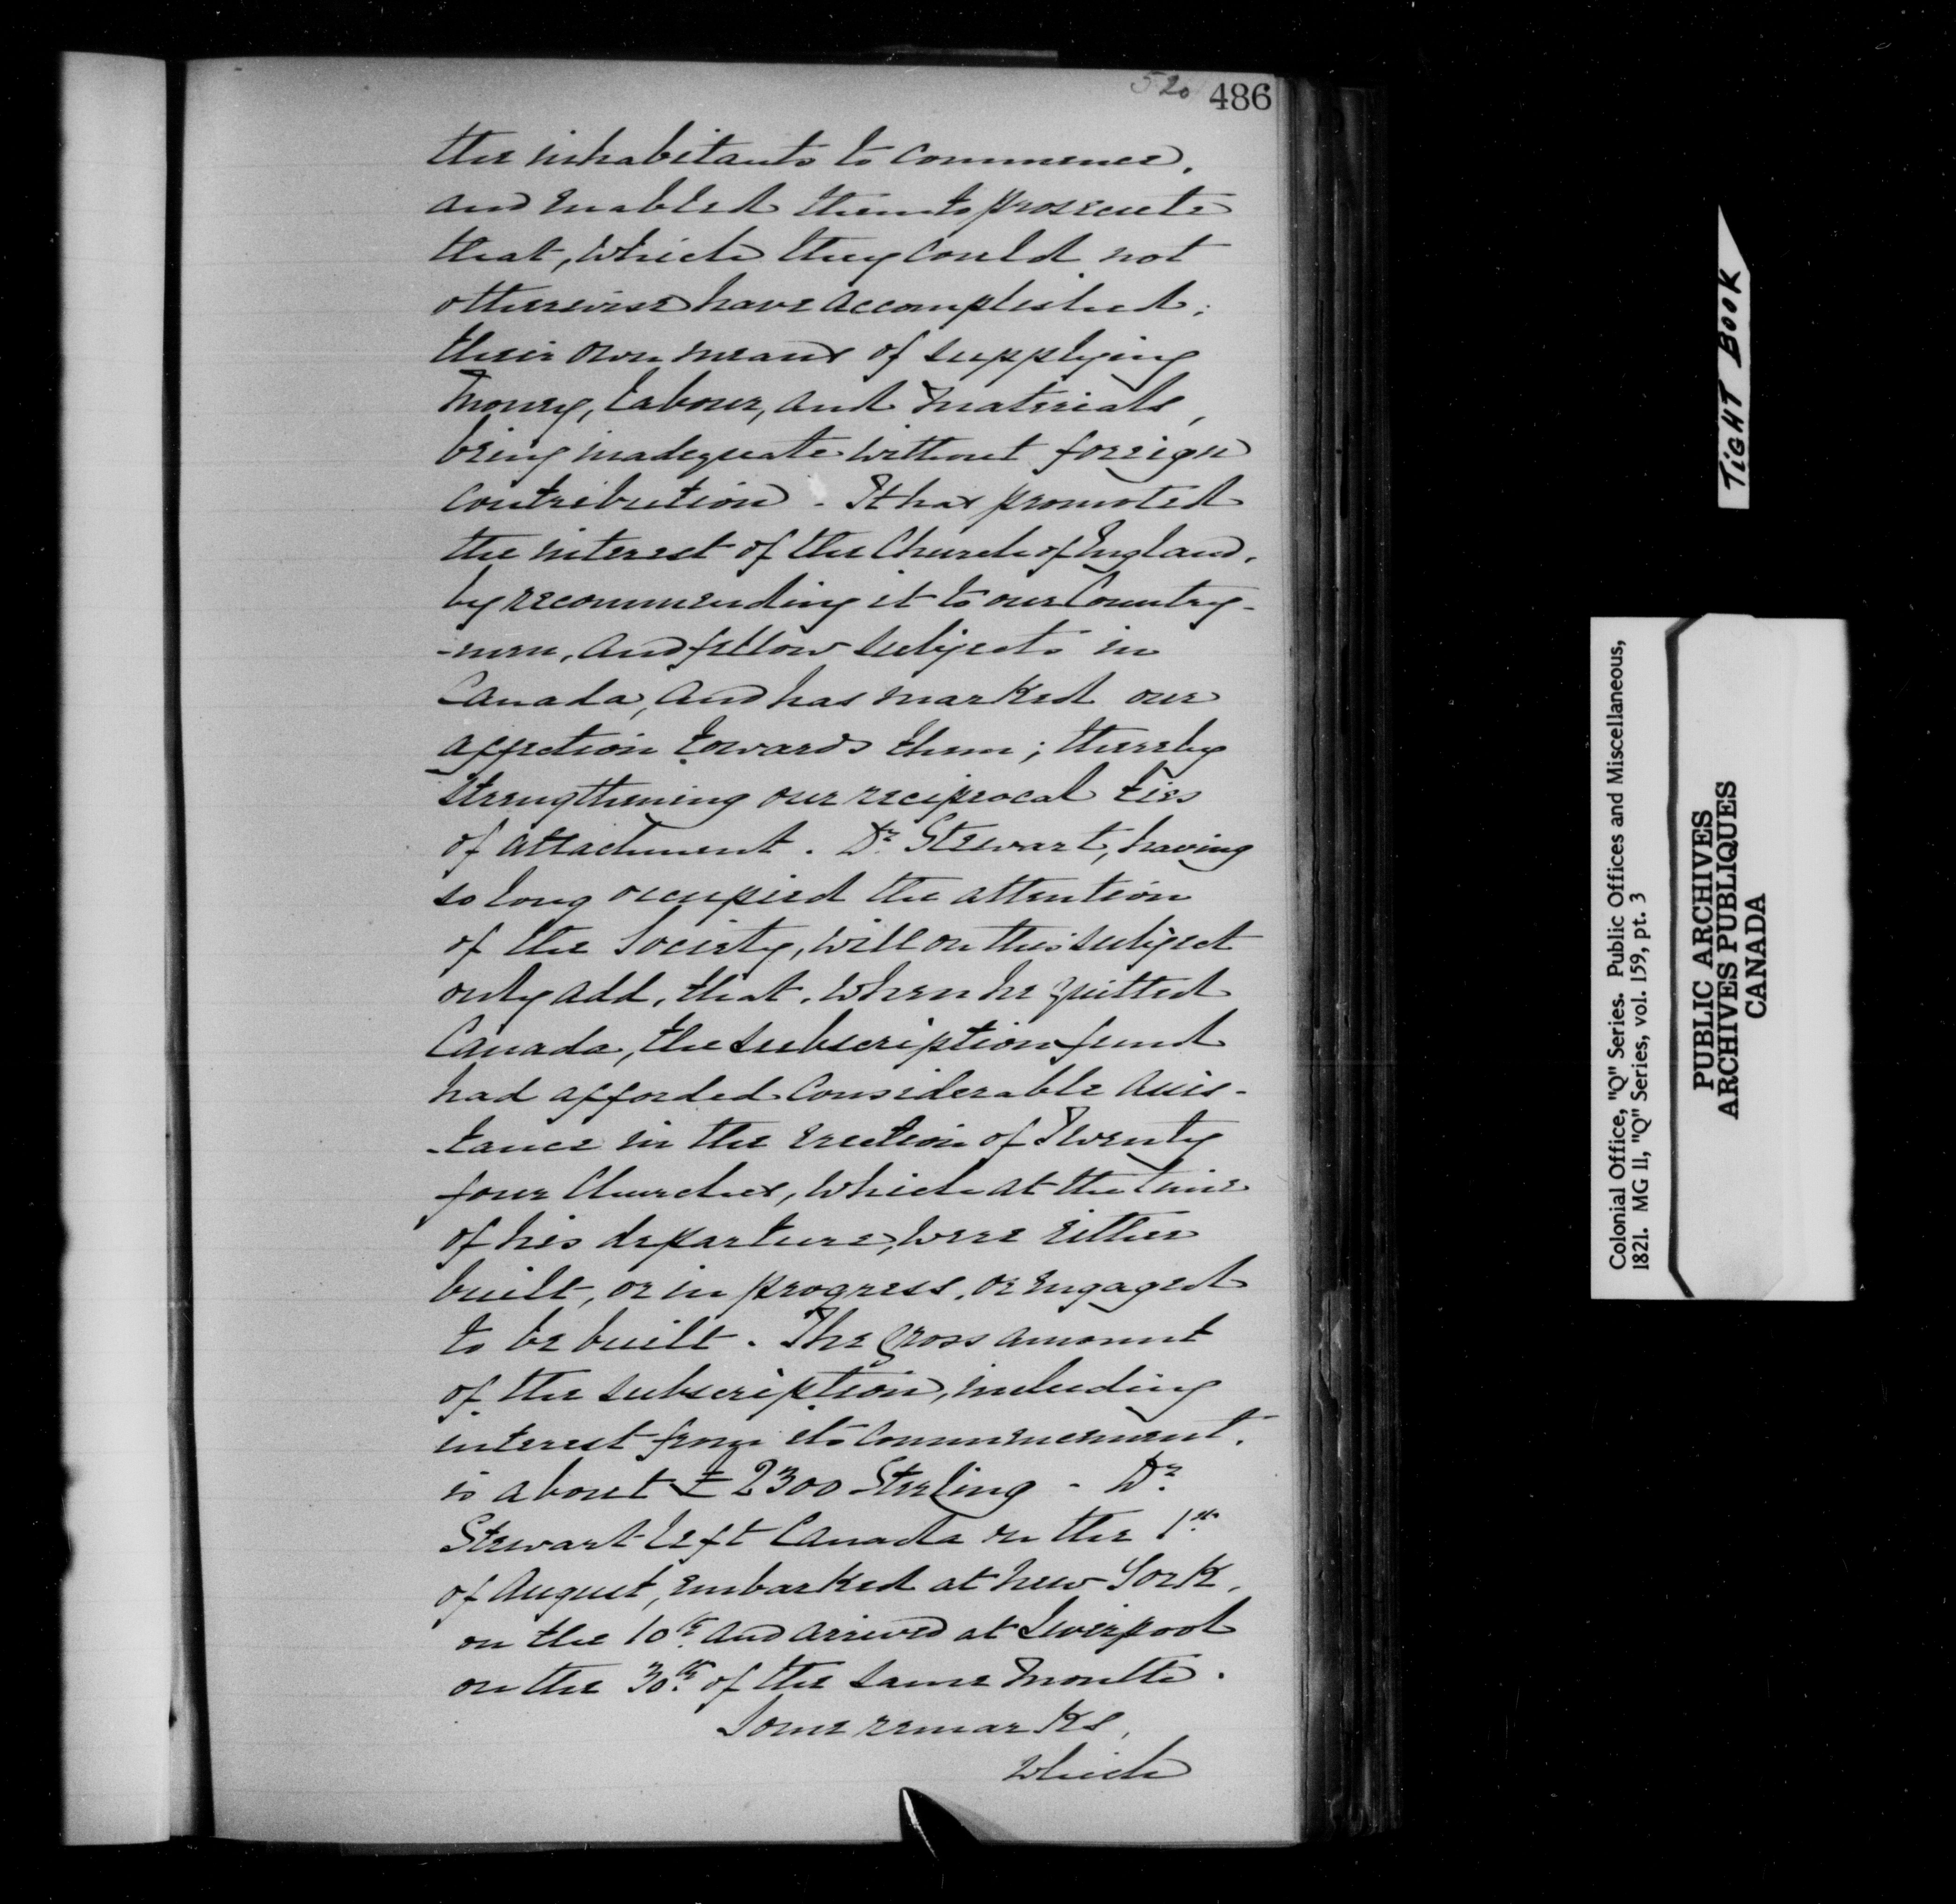 520 486
the inhabitants to commence,
and enabled them to prosecute
that, which they could not
otherwise have accomplished;
their own means of supplying
Money, Labour, and Materials,
being inadequate without foreign
contribution. It has promoted
the interest of the Church of England,
by recommending it to our Country-
-men, and fellow subjects in
Canada, and has marked our
affection towards them; thereby
strengthening our reciprocal ties
of attachment. Dr. Stewart, having
so long occupied the attention
of the Society, will on this subject
only add, that, when he quitted
Canada, the subscription fund
had afforded considerable assis-
-tance in the erection of Twenty
four Churches, which at the time
of his departure, were either
built, or in progress, or engaged
to be built. The Gross amount
of the subscription, including
interest from its commencement,
is about £2300 Sterling - Dr.
Stewart left Canada on the 1st.
of August, embarked at New York,
on the 10th. and arrived at Liverpool
on the 30th. of the same Month.
Some remarks,
which
TIGHT BOOK
Colonial Office, "Q" Series. Public Offices and Miscellaneous,
1821. MG 11, "Q" Series, vol. 159, pt. 3
PUBLIC ARCHIVES
ARCHIVES PUBLIQUES
CANADA